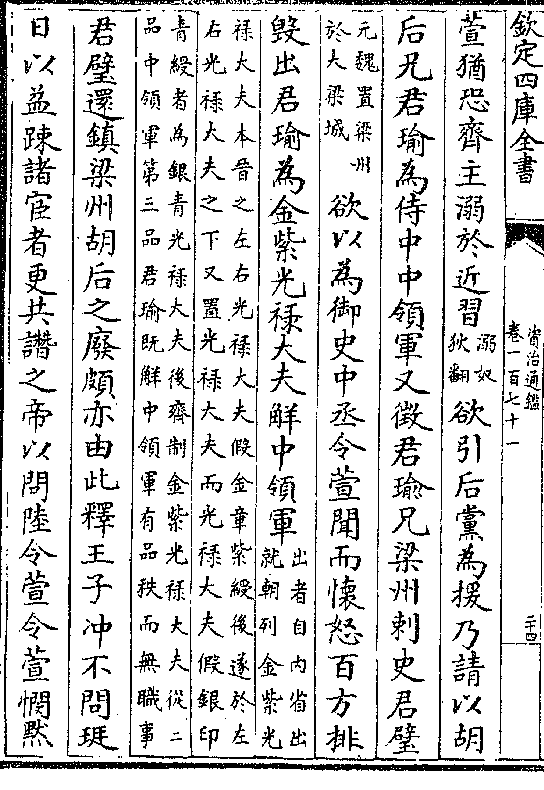 欽定四庫全書
資治通鑑
卷一百七十一
二十四
萱猶恐齊主溺於近習溺奴
狄翻欲引后黨為援乃請以胡
后兄君瑜為侍中中領軍又徵君瑜兄梁州刺史君璧
元魏置梁州
於大梁城欲以為御史中丞令萱聞而懷怒百方排
毀出君瑜為金紫光禄大夫解中領軍出者自内省出
就朝列金紫光
禄大夫本晉之左右光禄大夫假金章紫綬後遂於左
右光禄大夫之下又置光禄大夫而光禄大夫假銀印
青綬者為銀青光禄大夫後齊制金紫光禄大夫從二
品中領軍第三品君瑜既解中領軍有品秩而無職事
君璧還鎮梁州胡后之廢頗亦由此釋王子冲不問珽
日以益踈諸宦者更共譖之帝以問陸令萱令萱憫黙